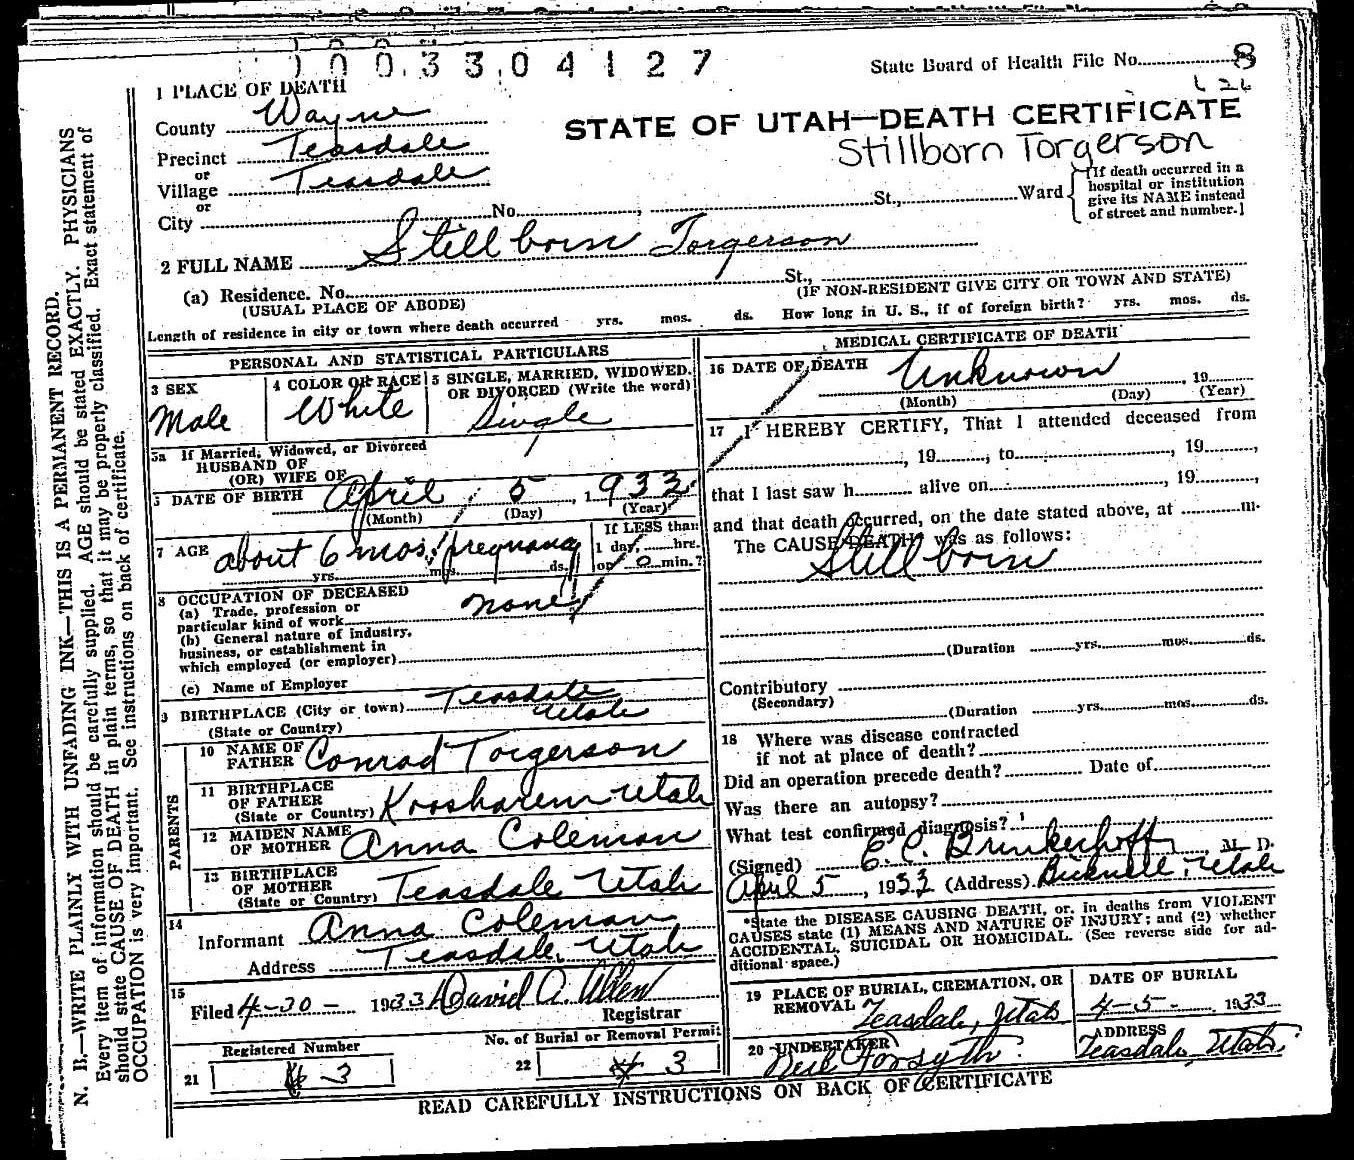 1003304127
State Board of Health File No. 8
626
1 PLACE OF DEATH
County Wayne
STATE OF UTAH—DEATH CERTIFICATE
Precinct Teasdale
Stillborn Torgerson
or
Village Teasdale
or
City No. , St., Ward
[If death occurred in a
hospital or institution
give its NAME instead
of street and number.]
2 FULL NAME Stillborn Torgerson
(a) Residence. No. St.,
(USUAL PLACE OF ABODE) (IF NON-RESIDENT GIVE CITY OR TOWN AND STATE)
Length of residence in city or town where death occurred yrs. mos. ds. How long in U. S., if of foreign birth? yrs. mos. ds.
PERSONAL AND STATISTICAL PARTICULARS
3 SEX
Male
4 COLOR OR RACE
White
5 SINGLE, MARRIED, WIDOWED,
OR DIVORCED (Write the word)
Single
5a If Married, Widowed, or Divorced
HUSBAND OF
(OR) WIFE OF
DATE OF BIRTH April 5, 1933
(Month) (Day) (Year)
7 AGE about 6 mos. pregnancy
yrs. mos. ds.
If LESS than
1 day, hrs.
or 0 min.?
8 OCCUPATION OF DECEASED
(a) Trade, profession or
particular kind of work none
(b) General nature of industry,
business, or establishment in
which employed (or employer)
(c) Name of Employer
BIRTHPLACE (City or town) Teasdale
(State or Country) Utah
PARENTS
10 NAME OF
FATHER Conrad Torgerson
11 BIRTHPLACE
OF FATHER
(State or Country) Koosharem Utah
12 MAIDEN NAME
OF MOTHER Anna Coleman
13 BIRTHPLACE
OF MOTHER
(State or Country) Teasdale Utah
14
Informant Anna Coleman
Address Teasdale, Utah
15
Filed 4-30- 1933 David A. Allen
Registrar
Registered Number
21 3
No. of Burial or Removal Permit
22 3
MEDICAL CERTIFICATE OF DEATH
16 DATE OF DEATH Unknown , 19
(Month) (Day) (Year)
17 I HEREBY CERTIFY, That I attended deceased from
, 19 , to , 19 ,
that I last saw h alive on , 19 ,
and that death occurred, on the date stated above, at m.
The CAUSE DEATH was as follows:
Stillborn
(Duration yrs. mos. ds.
Contributory
(Secondary)
(Duration yrs. mos. ds.
18 Where was disease contracted
if not at place of death?
Did an operation precede death? Date of
Was there an autopsy?
What test confirmed diagnosis?
(Signed) E. C. Brinkerhoff, M. D.
April 5, 1933 (Address) Bicknell, Utah
*State the DISEASE CAUSING DEATH, or, in deaths from VIOLENT
CAUSES state (1) MEANS AND NATURE OF INJURY; and (2) whether
ACCIDENTAL, SUICIDAL OR HOMICIDAL. (See reverse side for ad-
ditional space.)
19 PLACE OF BURIAL, CREMATION, OR
REMOVAL Teasdale, Utah
DATE OF BURIAL
4-5- 1933
20 UNDERTAKER
Neil Forsyth
ADDRESS
Teasdale, Utah
READ CAREFULLY INSTRUCTIONS ON BACK OF CERTIFICATE
N. B.—WRITE PLAINLY WITH UNFADING INK—THIS IS A PERMANENT RECORD.
Every item of information should be carefully supplied. AGE should be stated EXACTLY. PHYSICIANS
should state CAUSE OF DEATH in plain terms, so that it may be properly classified. Exact statement of
OCCUPATION is very important. See instructions on back of certificate.